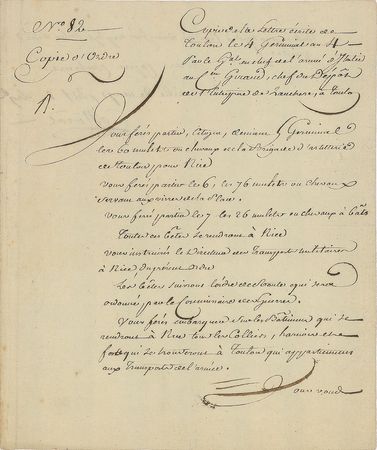 N.º 82
Copie d'Ordre
Copie de la Lettre écrite de
Toulon le 4 Germinal an 4
Par le Gal en chef de l'armée d'Italie
au Cen Giraud, chef du Dépôt
de l'Entreprise de Lanchere, à Toulon
Vous ferés partir, Citoyen, demain 5 Germinal
les 60 mulets ou chevaux de la Brigade d'artillerie
de Toulon pour Nice
Vous feré partir le 6, les 76 mulets ou chevaux
servant aux vivres de la
Vous feré partir le 7 les 26 mulets ou chevaux à bats
Toutes ces bêtes se rendront à Nice
Vous instruirés le Directeur des Transports militaires
à Nice du présent ordre
Les bêtes suivront l'ordre de route qui sera
ordonné par le Commissaire des Guerres.
Vous ferés embarquer sur les Batimens qui se
rendront à Nice tous les Colliers, harnois et
qui se trouveront à Toulon qui appartiennent
aux Transports de l'armée.